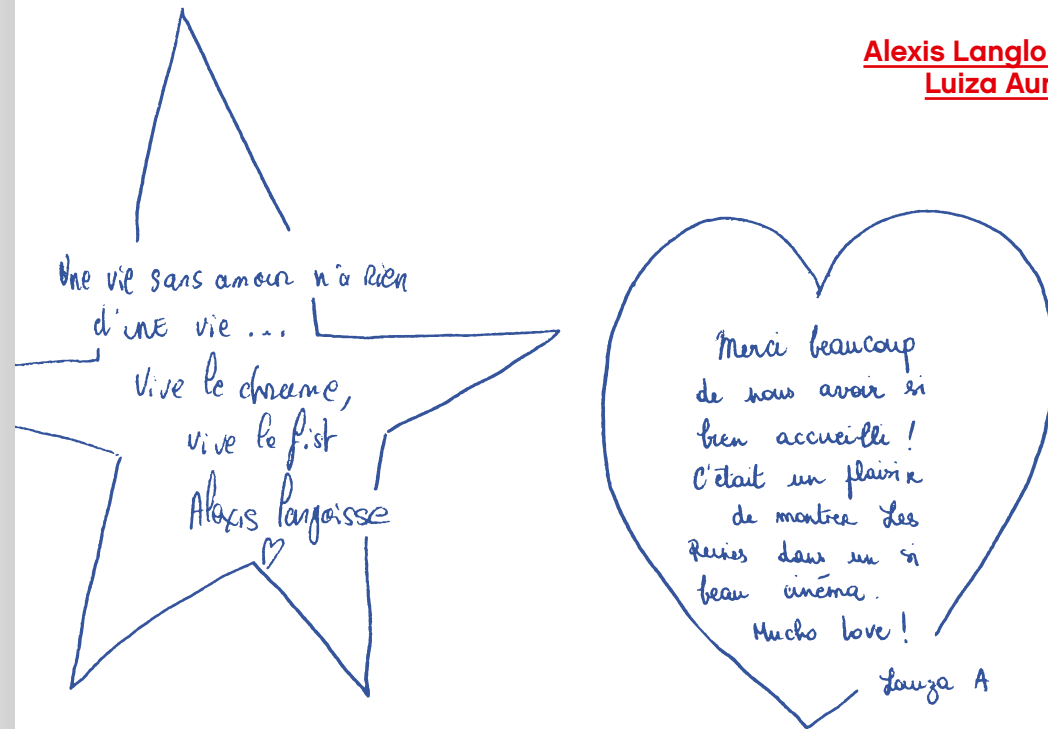 Alexis Langlo
Luiza Aur
Une vie sans amour n'a rien
d'une vie ...
Vive le drame,
vive le fist
Alexis Langoisse
Merci beaucoup
de nous avoir si
bien accueilli !
C'était un plaisir
de montrer Les
Reines dans un si
beau cinéma.
Mucho love !
Louiza A